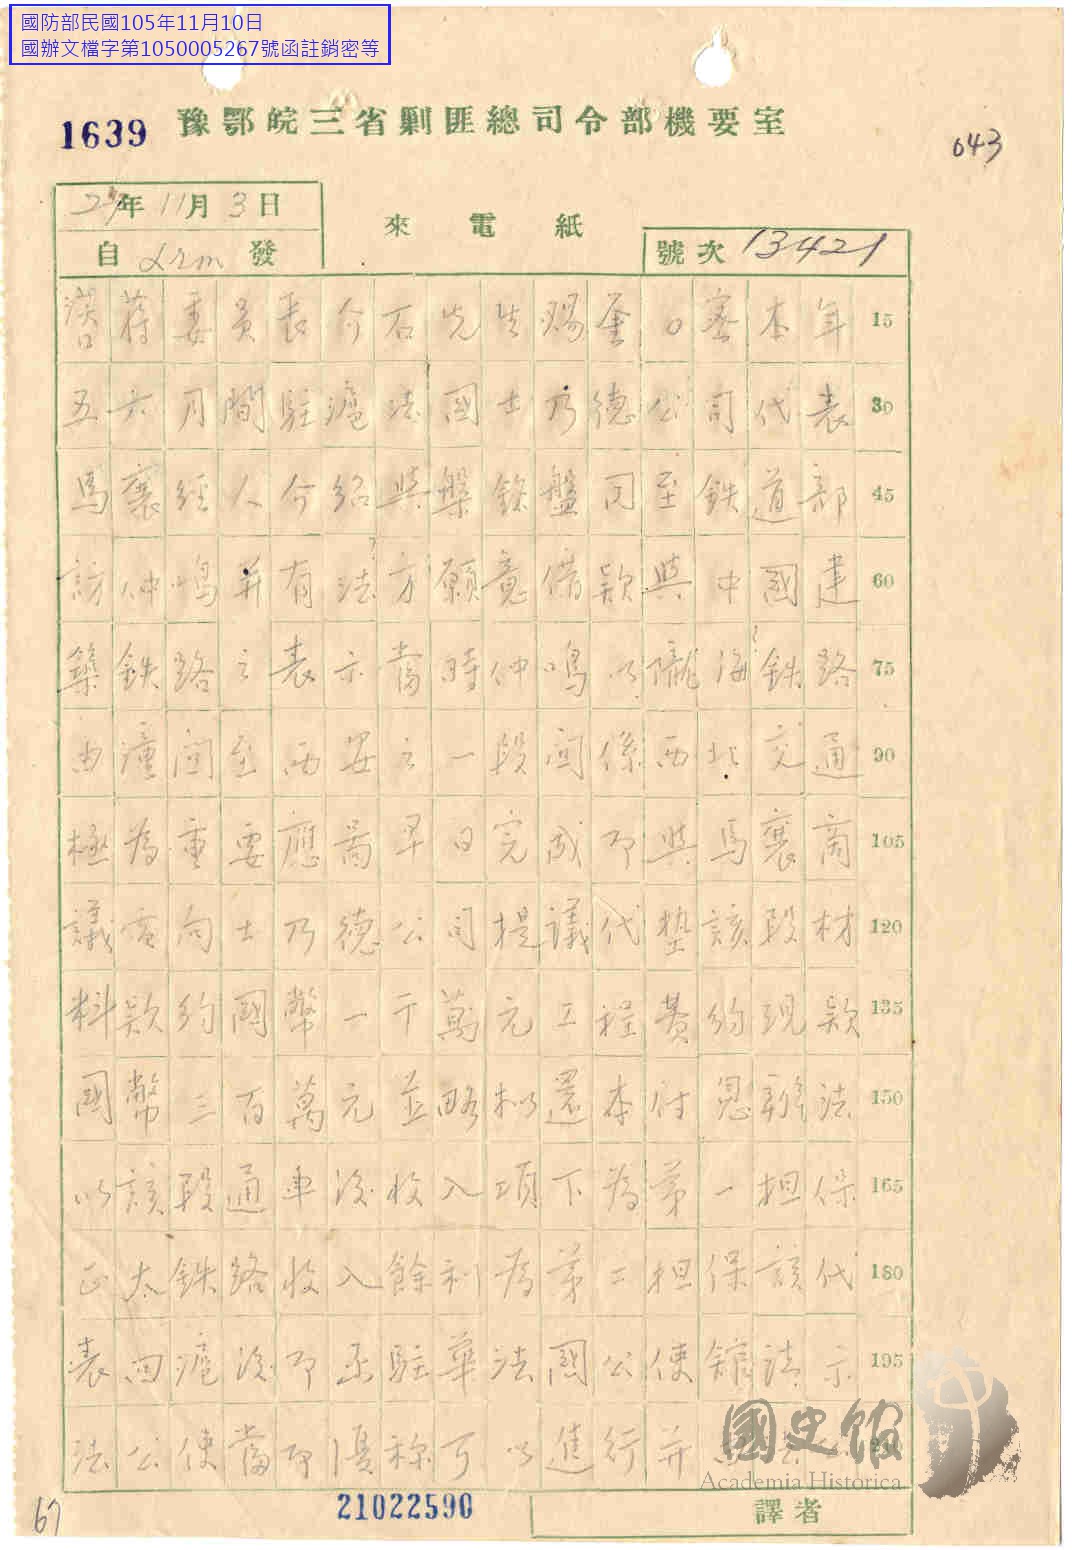 國防部民國105年11月10日
國辦文檔字第1050005267號函註銷密等
1639
豫鄂皖三省剿匪總司令部機要室
043
年11月3日
自 發
來電紙
號次 13421
漢口蔣委員長介石先生賜鑒○密本年 15
五六月間駐滬法國士乃德公司代表 30
馬襄經人介紹與槃銘盤同至鉄道部 45
訪仲鳴并有法方願意借款與中國建 60
築鉄路之表示當時仲鳴以隴海鉄路 75
由潼関至西安之一段関係西北交通 90
極為重要應啚早日完成即與馬襄商 105
議電向士乃德公司提議代墊該段材 120
料款約國幣一千萬元工程費約現款 135
國幣三百萬元並略拟還本付息辦法 150
以該段通車後收入項下為第一担保 165
正太鉄路收入餘利為第二担保該代 180
表回滬後即函駐華法國公使館請示 195
法公使當即復称可以進行并
國史館
Academia Historica
21022590
譯者
67